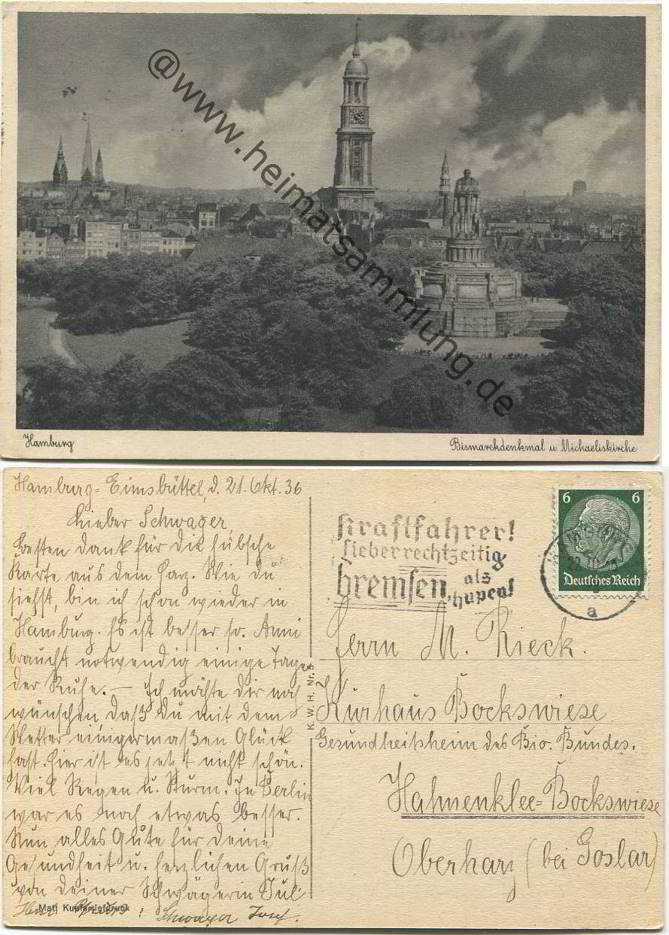 @www.heimatsammlung.de
Hamburg
Bismarckdenkmal u Michaeliskirche
Hamburg-Eimsbüttel, d. 21. Okt. 36
Lieber Schwager,
Besten Dank für die hübsche
Karte aus dem Harz. Wie Du
siehst, bin ich schon wieder in
Hamburg. Es ist besser so. Anni
braucht notwendig einige Tage
der Ruhe. — Ich möchte Dir noch
wünschen daß Du mit dem
Wetter einigermaßen Glück
hast. Hier ist es jetzt nicht schön.
Viel Regen u. Sturm. In Berlin
war es noch etwas besser.
Nun alles Gute für deine
Gesundheit u. herzlichen Gruß
von deiner Schwägerin
Schwager Josef.
Matt Kupfertiefdruck
W. H. Nr.
Kraftfahrer!
Lieber rechtzeitig
bremsen, als
hupen!
6 6
Deutsches Reich
a
Herrn M. Rieck.
Kurhaus Bockswiese
Gesundheitsheim des Bio. Bundes.
Hahnenklee-Bockswiese
Oberharz (bei Goslar)